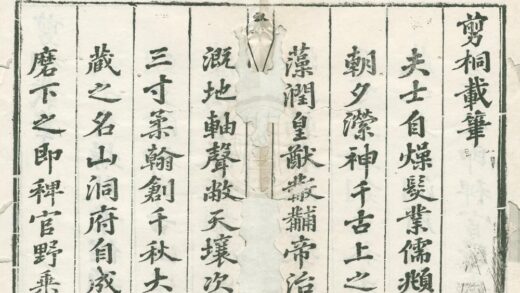 剪桐載筆
夫士自燥髮業儒頫
朝夕濚神千古上之
藻潤皇猷黻黼帝治
溉地軸聲敝天壤次
三寸柔翰創千秋大
藏之名山洞府自成
磨下之即稗官野乘